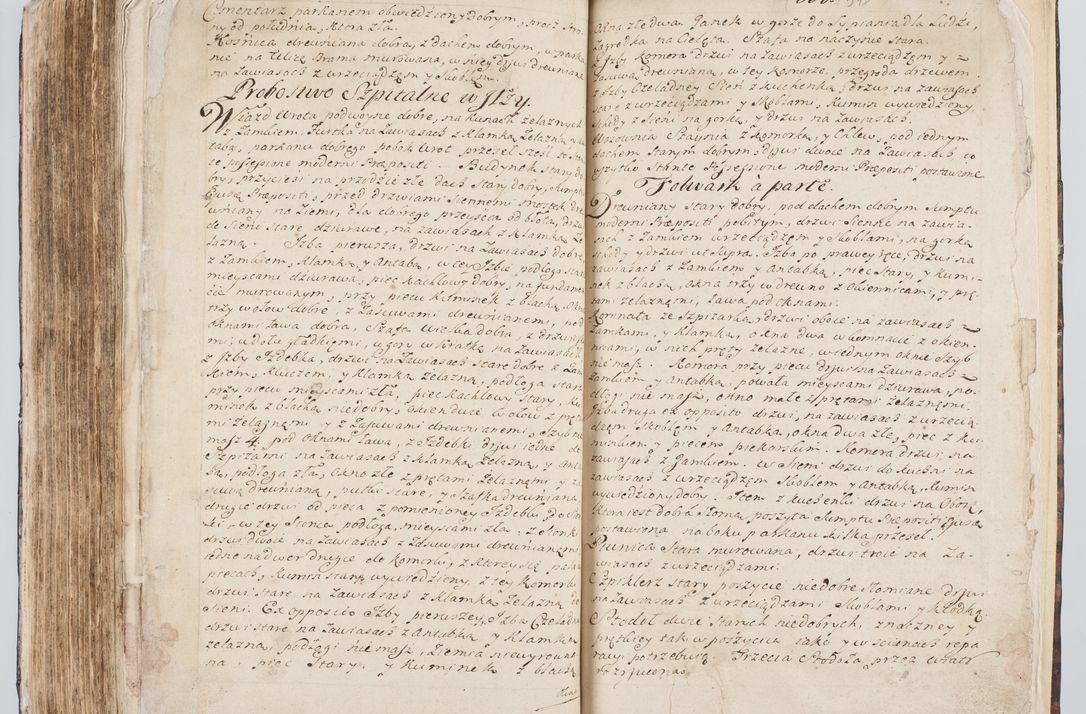 Cmentarz parkanem obwiedziony dobrym, prosz Stro
ny od południa, ktora zła.
Kośnica drewniana dobra, z dachem dobrym, w parka
nie na Ulicę Brama murowana, w niey drzwi drewniane
na zawiasach z wrzeciądzem y skoblem.
Probostwo Szpitalne w Jłży.
Wiazd Wrota podwoyne dobre, na kunach żelaznych
z Zamkiem. Furtka na zawiasach z klamką żelazną, y an
tabą, parkanu dobrego pobok Wrot przeseł sześć to
moderni Præpositi. Budynek stary do
bry, przyciesi na przodzie złe dach stary dobry, sumptu
Præpositi, przed drzwiami siennemi mostek dre
wniany na ziemi, dla dobrego przeyscia od błota, drzwi
do Sieni stare dziurawe, na zawiasach z klamką że
lazną. Jzba pierwsza, drzwi na zawiasach dobre
z Zamkiem, klamką y antabą, w tey Jzbie podłoga stara
mieyscami dziurawa, piec kachlowy dobry, na fundamen
cie murowanym, przy piecu kominek z blachą, okna
trzy w ołow dobre, z zasuwami drewnianemi, pod
oknami ława dobra, Szafa wielka dobra, z drzwia
mi, u dołu gładkiemi, u gory w kratkę na zawiasach
z Jzby Jzdebka, drzwi na zawiasach stare dobre z Zam
kiem, kluczem, y klamką żelazną, podłoga stara
przy piecu mieyscami zła, piec kachlowy stary, ko
minek z blachą niedobry, okien dwie w ołow z pręta
mi żelaznęmi y z zasuwami drewnianemi, szyb nie
masz 4. pod oknami ława, z Jzdebki drzwi iedne do
Szpizarni na zawiasach z klamką żelazną, y anta
bą, podłoga zła, okno złe z prętami żelaznęmi y za
suwą drewnianą, pułki stare, y Szafka drewniana
drugie drzwi od pieca z pomienioney Jzdebki do
ki, w tey Stonce podłoga mieyscami zła, z Stonki
drzwi dwoie na zawiasach z zasuwami drewnianemi
iedne na dwor drugie do komorki, z ktorey się palą
piecach, komin stary wywiedziony. z tey komorki
drzwi stare na zawiasach z klamką żelazną do
Sieni. Ex opposito Jzby pierwszey, Jzba Czeladna
drzwi stare na zawiasach z antabą, y klamką
żelazną, podłogi nie masz, ziemia niewyrowna
na, piec stary, y kominek z blachą
Okna
okna złe dwa. Ganek w gorze do sypiania dla Ludzi,
Zagrodka na Cielęta. Szafa na naczynie stara.
z Jzby Komora drzwi na zawiasach z wrzeciądzem y
zasuwą drewnianą, w tey komorze przegroda drzewem.
z Jzby Czeladney Sień z kuchenką, drzwi na zawiasach
stare z wrzeciądzami y skoblami, komin wywiedziony.
Schody z Sieni na gorkę, y drzwi na zawiasach.
Wozownia Staynia z komorką, y Chlew, pod iednym
dachem starym dobrym, drzwi dwoie na zawiasach co
wszytko moderni Præpositi postawione
Folwark a parte.
Drewniany stary dobry, pod dachem dobrym sumptu
moderni Præpositi pobitym, drzwi Sienne na zawia
sach z Zamkiem wrzeciądzem y skoblami, na gorkę
schody y drzwi ut supra. Jzba po prawey ręce, drzwi na
zawiasach z Zamkiem y antabką, piec stary, y komi
nek z blachą, okna trzy w drewno z okiennicami, y prę
tami żelaznęmi, ława pod oknami.
Komnata ze Szpizarką, drzwi oboie na zawiasach z
Zamkami, y klamką, okna dwa w komnacie z okien
nicami, w nich pręty żelazne, w iednym oknie szyb
nie masz. Komora przy piecu drzwi na zawiasach z
Zamkiem y antabką, powała mieyscami dziurawa, po
dłogi nie masz, okno małe z prętami żelaznęmi.
Jzba druga ex opposito drzwi, na zawiasach z wrzecią
dzem skoblem y antabką, okna dwa złe, piec z ko
minkiem y piecem piekarskim. Komora drzwi na
zawiasach z Zamkiem. w Sieni drzwi do kuchni na
zawiasach z wrzeciądzem skoblem y antabką, komin
wywiedziony dobry. Jtem z kuchenki drzwi na Oborę,
ktora iest dobra słomą poszyta sumptu Præpositi
postawiona na boku parkanu kilka przeseł.
Piwnica stara murowana, drzwi troie na za
wiasach z wrzeciądzami.
Szpiklerz stary poszycie niedobre słomiane drzwi
na zawiasach z wrzeciądzami skoblami y kłodką
Stodoł dwie starych niedobrych, znaczney y
prętkiey tak w poszyciu iako y w scianach repa
racyi potrzebuią. Trzecia Stodoła przez wiatr
rozrzucona